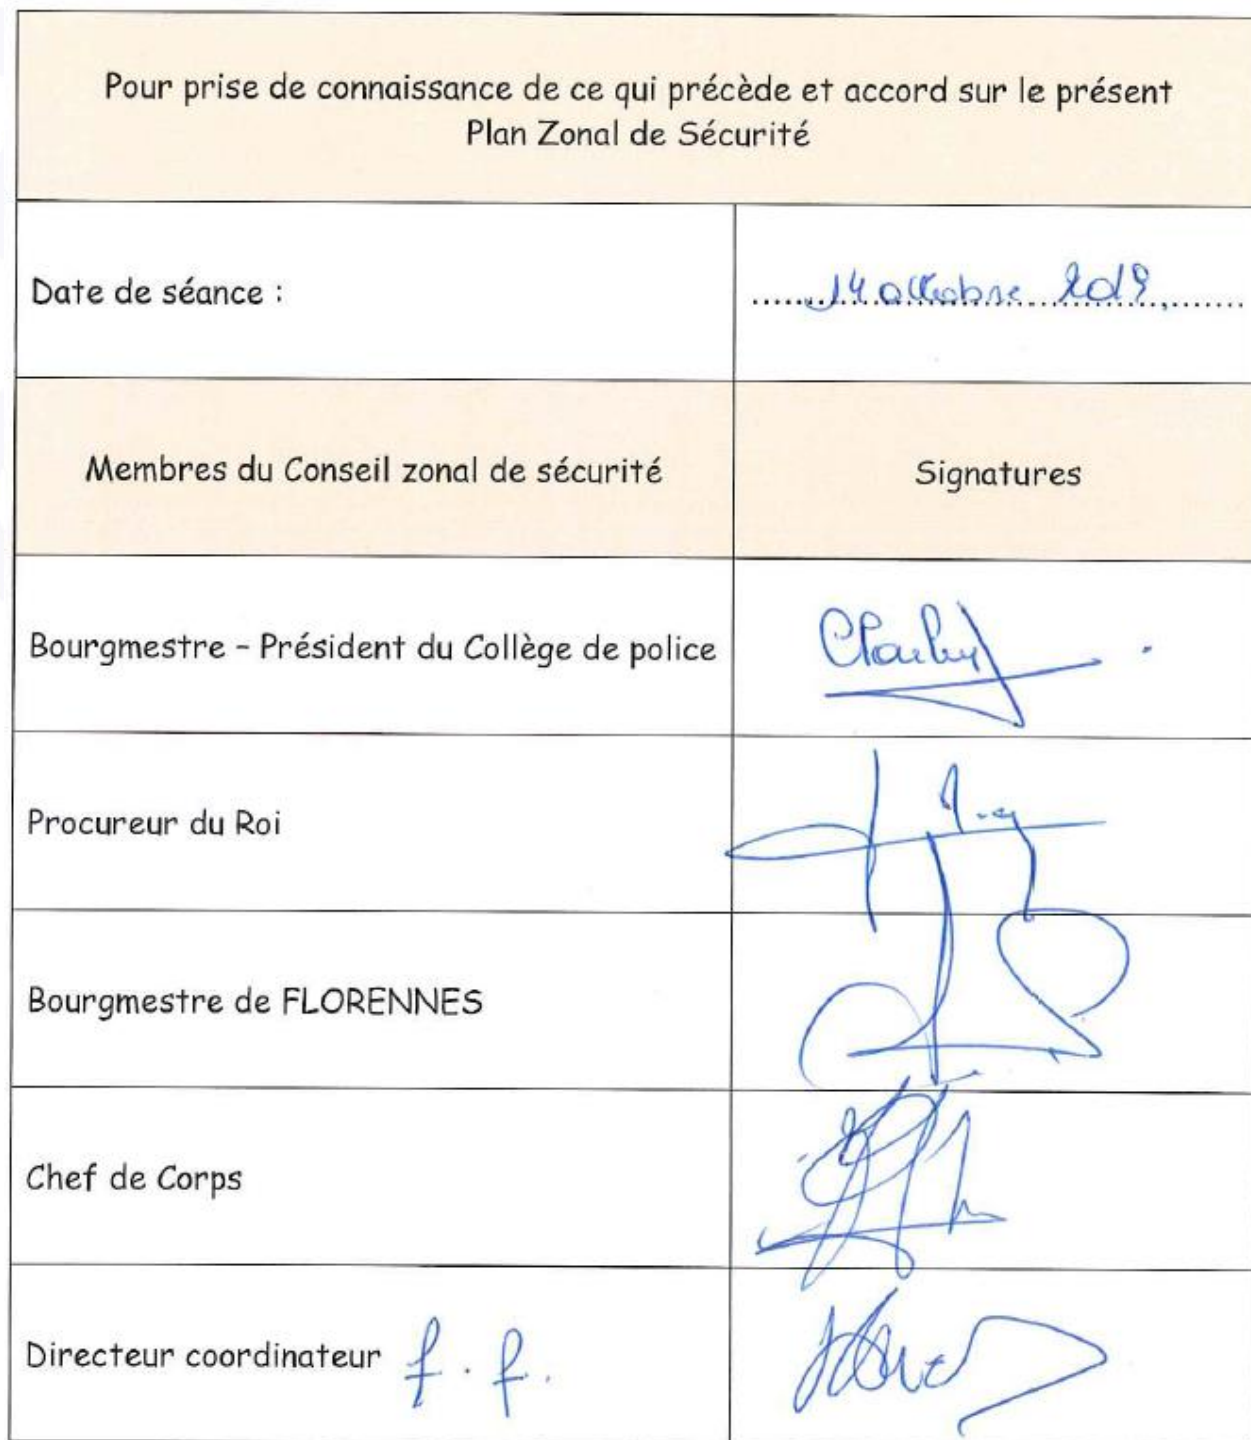 Pour prise de connaissance de ce qui précède et accord sur le présent
Plan Zonal de Sécurité
Date de séance : 14 octobre 2019.
Membres du Conseil zonal de sécurité Signatures
Bourgmestre – Président du Collège de police
Procureur du Roi
Bourgmestre de FLORENNES
Chef de Corps
Directeur coordinateur f.f.